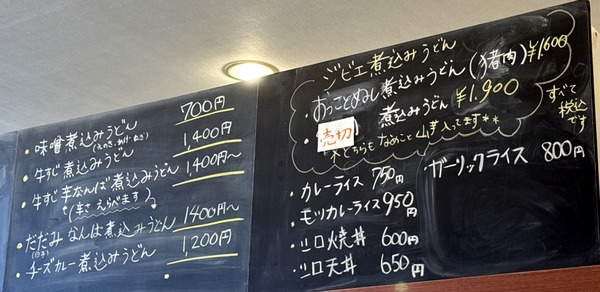 ・味噌煮込みうどん 700円
・牛すじ煮込みうどん 1,400円
・牛すじ辛なんば煮込みうどん 1,400円～
(辛さえらべます)
・だだみなんば煮込みうどん 1400円～
(白子)
・チーズカレー煮込みうどん 1,200円
ジビエ煮込みうどん
・おっことぬし煮込みうどん(猪肉) ¥1,600
・売切 煮込みうどん ¥1,900
*どちらもなめこと山芋入ってます**
すべて税込です
・カレーライス 750円
・モツカレーライス 950円
・ガーリックライス 800円
・ホロ焼丼 600円
・ホロ天丼 650円